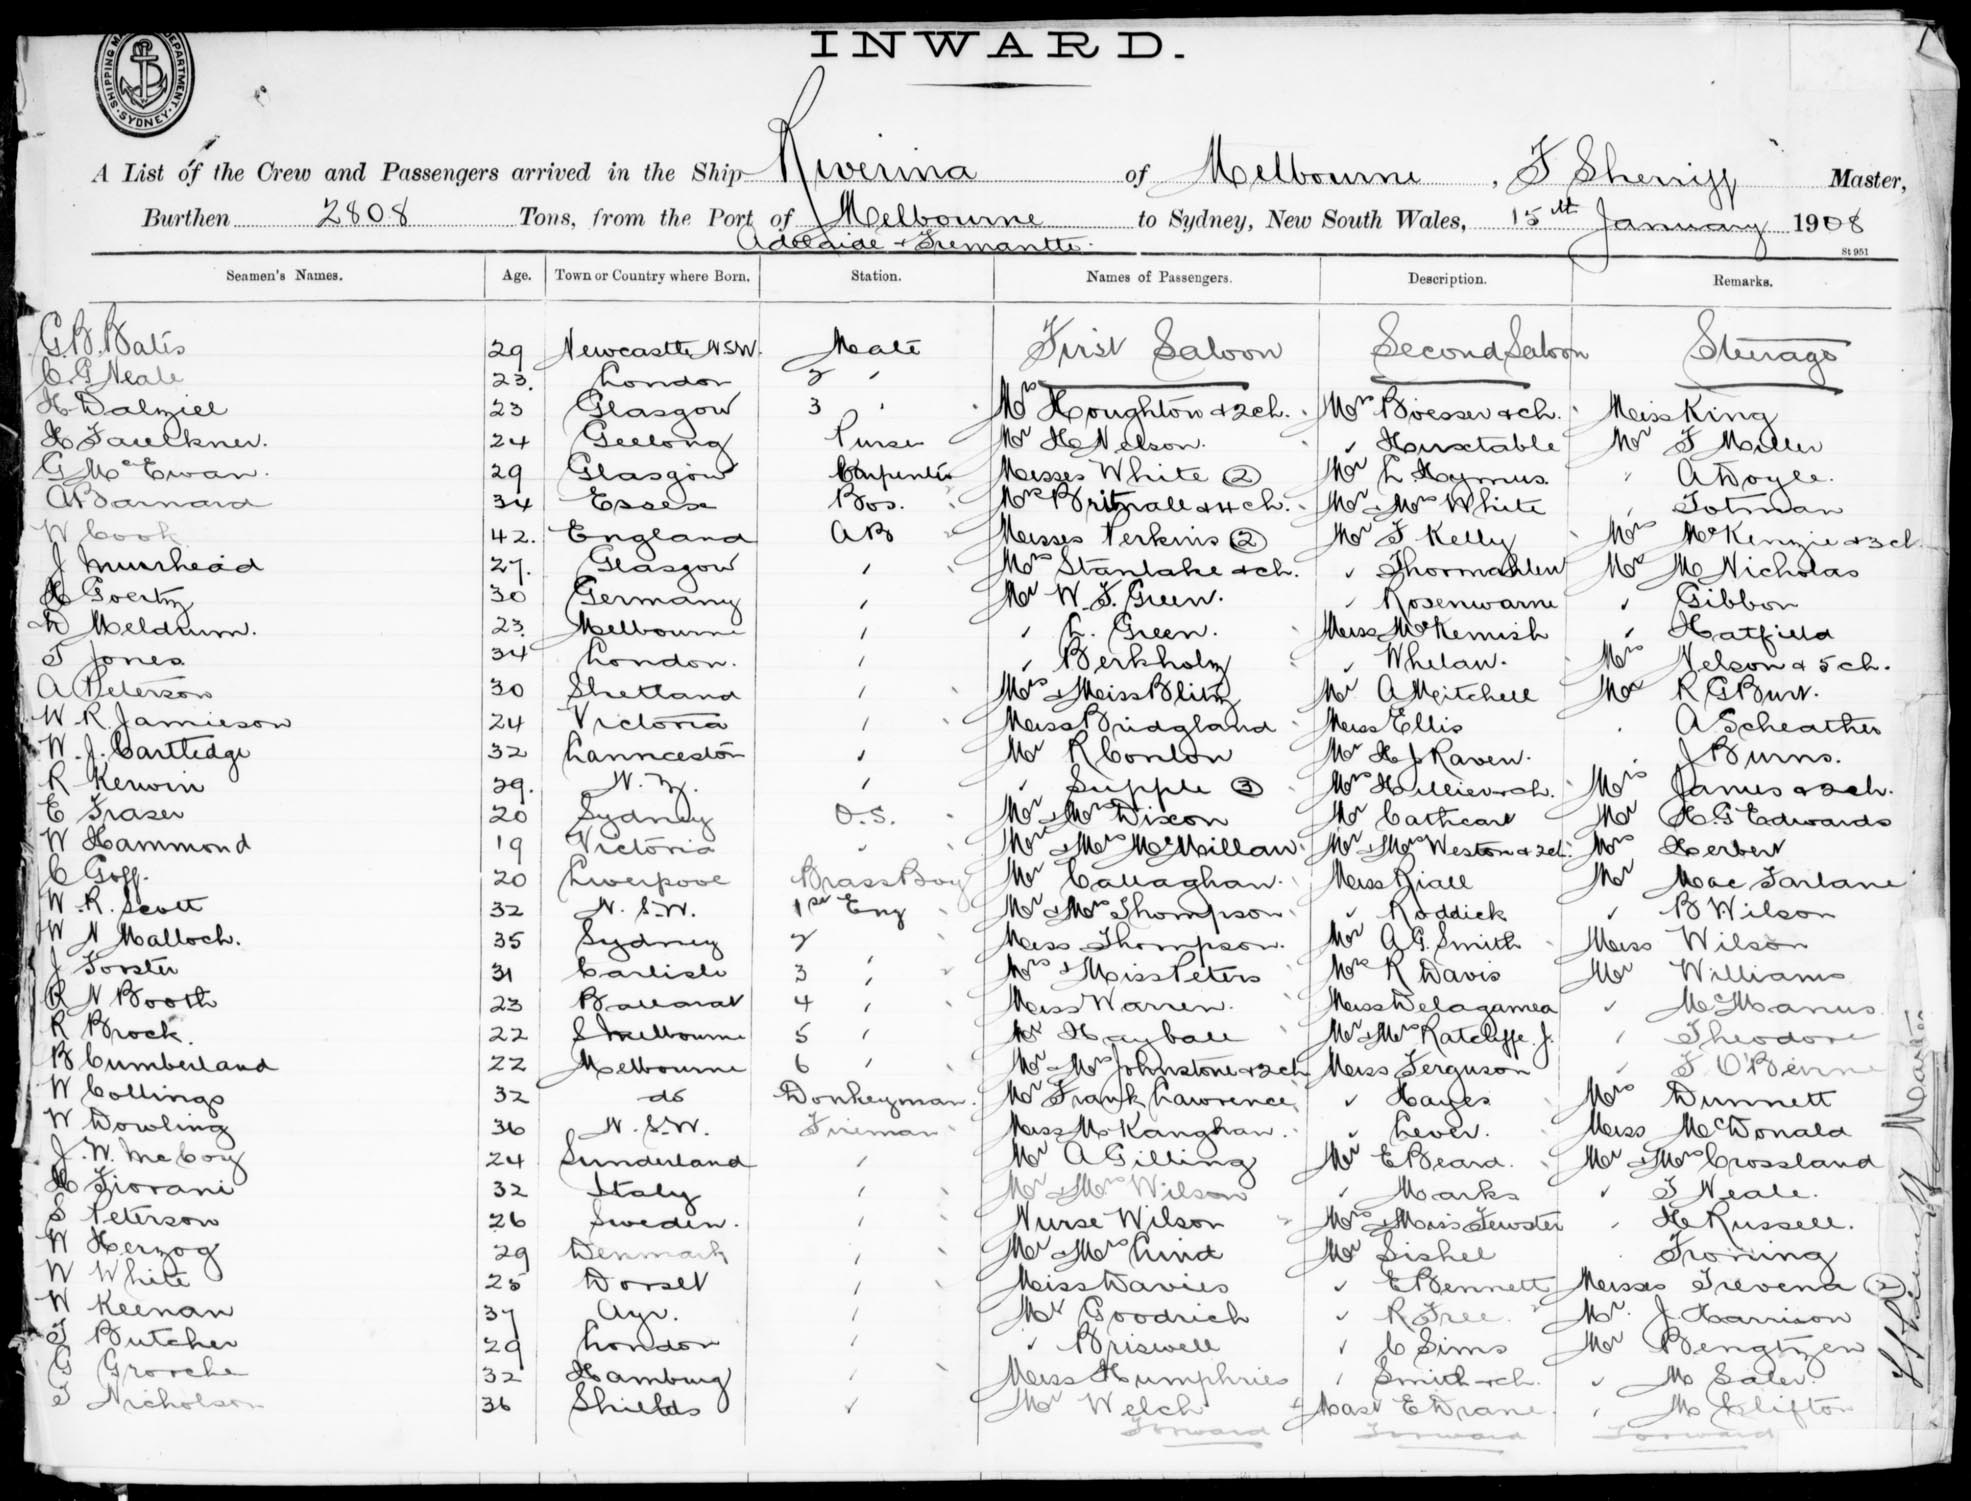 SHIPPING MA DEPARTMENT. SYDNEY.
INWARD.
A List of the Crew and Passengers arrived in the Ship Riverina of Melbourne, F Sherriff Master,
Burthen 2808 Tons, from the Port of Melbourne to Sydney, New South Wales, 15th January 1908
Adelaide & Fremantle.
St 951
Seamen's Names. Age. Town or Country where Born. Station. Names of Passengers. Description. Remarks.
G.B. Bates 29 Newcastle N.S.W. Mate First Saloon Second Saloon Steerage
C.G Neale 23. London 2 "
H Dalziel 23 Glasgow 3 " Mrs Houghton & 2 ch. Mrs Boesser & ch. Miss King
H Faulkner. 24 Geelong Purser Mr H Nelson. " Huxtable Mr F Miller
G McEwan. 29 Glasgow Carpenter Misses White (2) Mr L. Hymus. " A Doyle.
A Barnard 34 Essex Bos. Mrs Britnall & 4 ch. Mr & Mrs White " Totman
W Cook 42. England AB Misses Perkins (2) Mr F Kelly Mrs McKenzie & 3 ch
J Muirhead 27. Glasgow " Mrs Stanlake & ch. " Thormahlen Mr M Nicholas
H Goertz 30 Germany " Mr W. F. Green. " Rosenwarne " Gibbon
D Meldrum. 23. Melbourne " " L. Green. Miss McKemish " Hatfield
T Jones 34 London. " " Berkholz " Whelan. Mrs Nelson & 5 ch.
A Peterson 30 Shetland " Mrs & Miss Blitz Mr A Mitchell Mr R G Burt.
W.R. Jamieson 24 Victoria " Miss Bridgland Miss Ellis " A Scheather
W. J. Cartledge 32 Launceston " Mr R Conlon Mr H J Raven. " J Burns.
R Kerwin 29. N. Z. " " Supple (3) Mrs Hillier & ch. Mrs James & 2 ch.
E Fraser 20 Sydney O.S. Mr & Mrs Dixon Mr Cathcart Mr H.G Edwards
W Hammond 19 Victoria " Mr & Mrs McMillan Mr & Mrs Weston & 2 ch. Mrs Herbert
C Goff. 20 Liverpool Brass Boy Mr Callaghan. Miss Riall Mr MacFarlane
W. R. Scott 32 N. S.W. 1st Eng Mr & Mrs Thompson. " Roddick " B. Wilson
W N Malloch. 35 Sydney 2 " Miss Thompson. Mr A.G. Smith Miss Wilson
J Forster 31 Carlisle 3 " Mrs & Miss Peters Mr R Davis Mr Williams
R N Booth 23 Ballarat 4 " Miss Warren. Miss Delagamea " McManus
R Brock. 22 S Melbourne 5 " Mr Hayball Mr & Mrs Ratcliffe. J. " Theodore
B Cumberland 22 Melbourne 6 " Mr & Mrs Johnstone & 2 ch Miss Ferguson " F. O'Beirne
W Collings 32 do Donkeyman. Mr Frank Lawrence " Hayes Mrs Dunnett
W Dowling 36 N. S.W. Fireman Miss McKanghan. " Lever. Miss McDonald
J. W. McCoy 24 Sunderland " Mr A Gilling Mr E Beard. Mr & Mrs Crossland
H Fiorani 32 Italy " Mr & Mrs Wilson " Marks " T Neale.
S Peterson 26 Sweden. " Nurse Wilson Mrs & Miss Fewster " H Russell.
W Herzog 29 Denmark " Mr & Mrs Lind Mr Sishel " Froning
W White 25 Dorset " Miss Davies " E Bennett Misses Trevena (2)
W Keenan 37 Ayr. " Mr Goodrich " R Free. Mr. J Harrison
T Butcher 29 London " " Briswell " C Sims Mr Bengtzen
G Grosche 32 Hamburg " Miss Humphries " Smith & ch. " M Sater.
T Nicholson 36 Shields " Mr Welch Mast E Drane. " M Clifton
Forward Forward Forward
F Sherriff Master